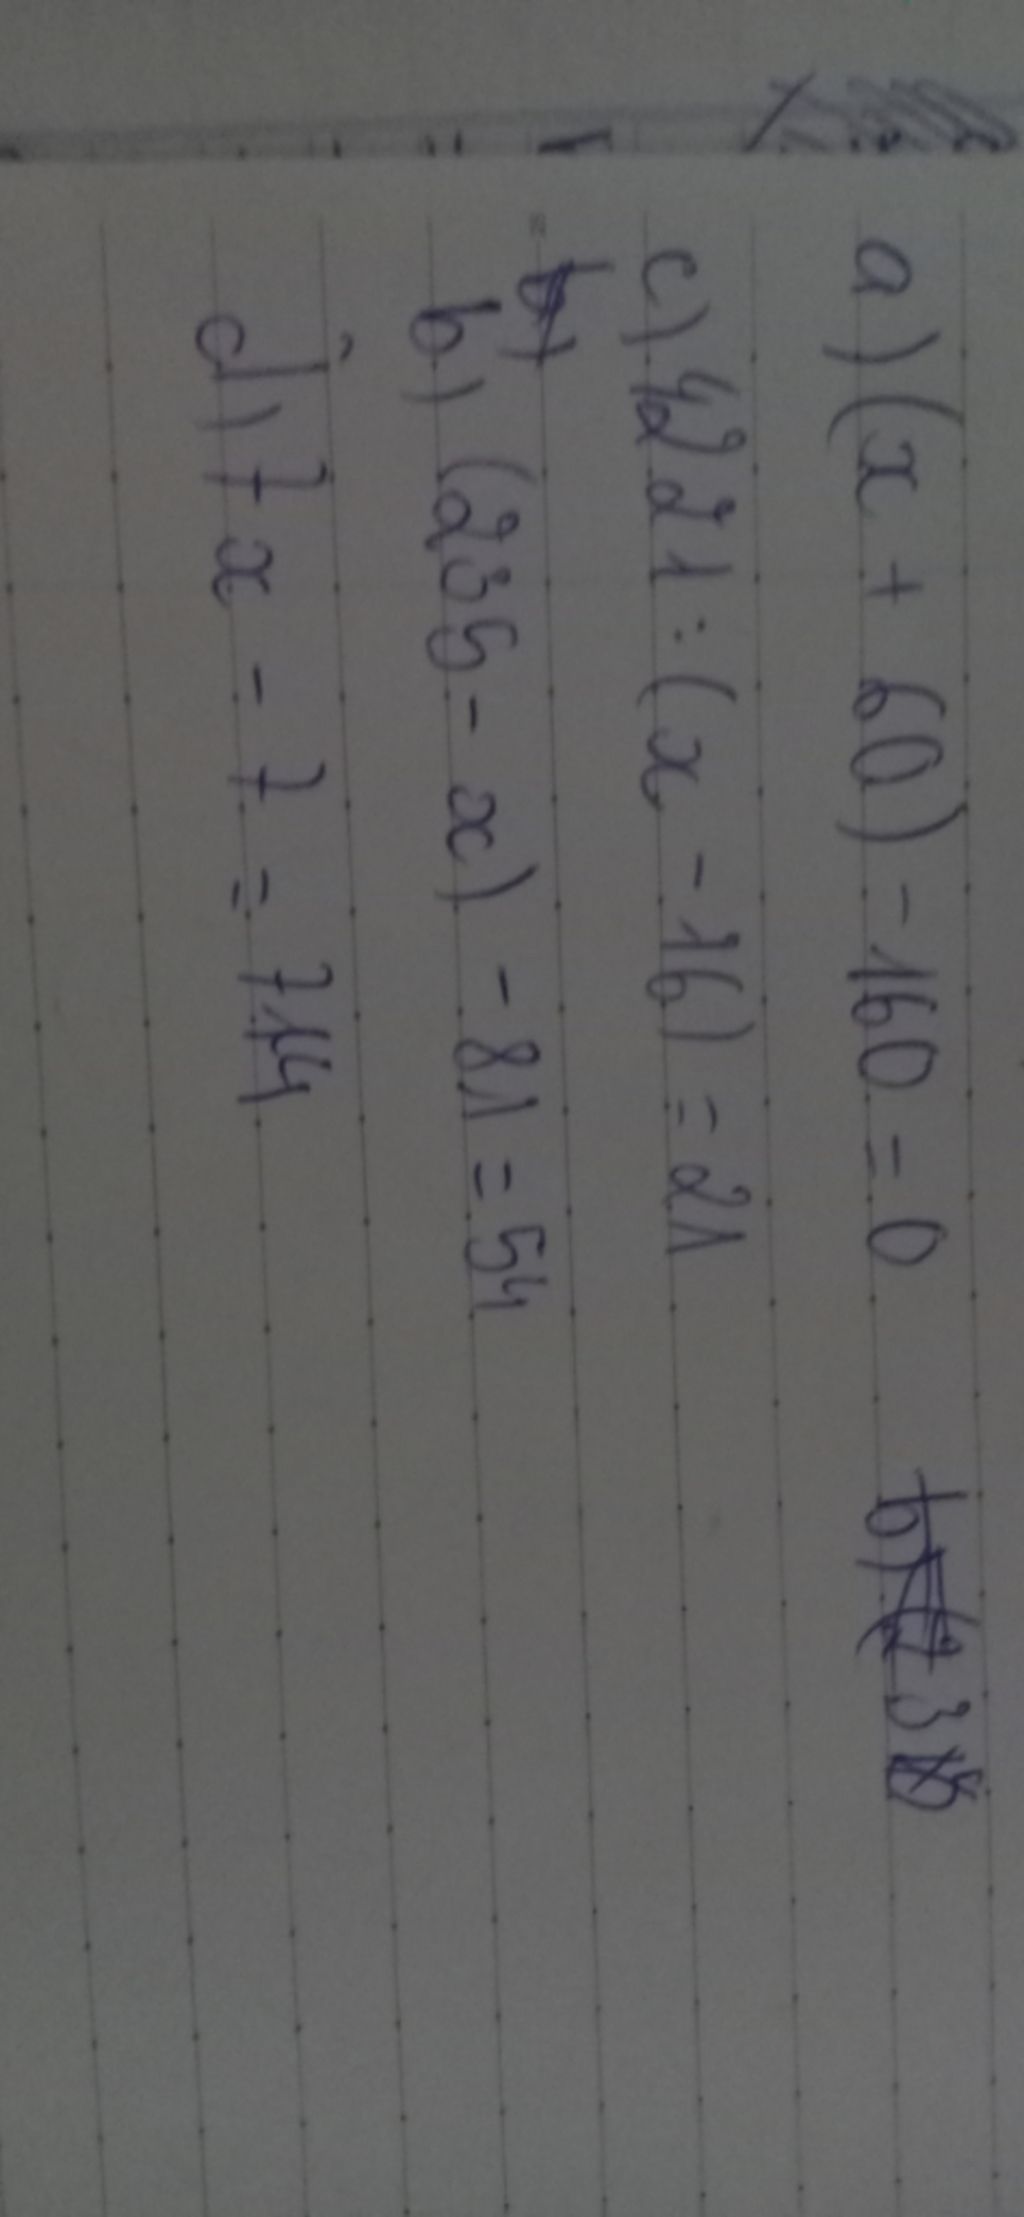 a) (x + 60) - 160 = 0
c) 421 : (x - 16) = 21
b) (235 - x) - 81 = 54
d) 7x - 7 = 714